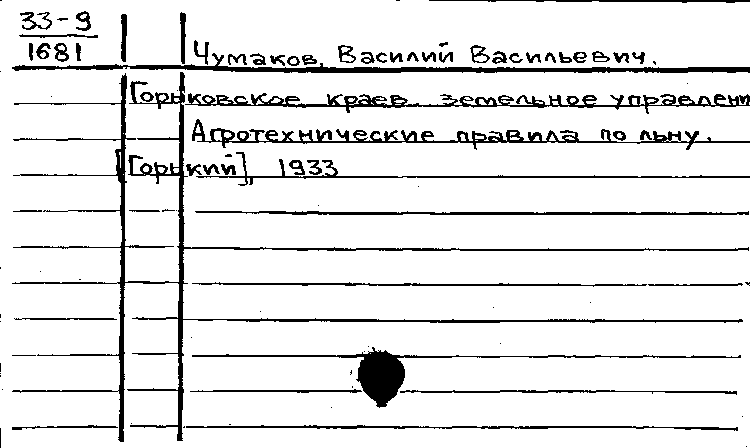 33-9
1681
Чумаков, Василий Васильевич.
Горьковское краев. земельное управлен
Агротехнические правила по льну.
[Горький], 1933